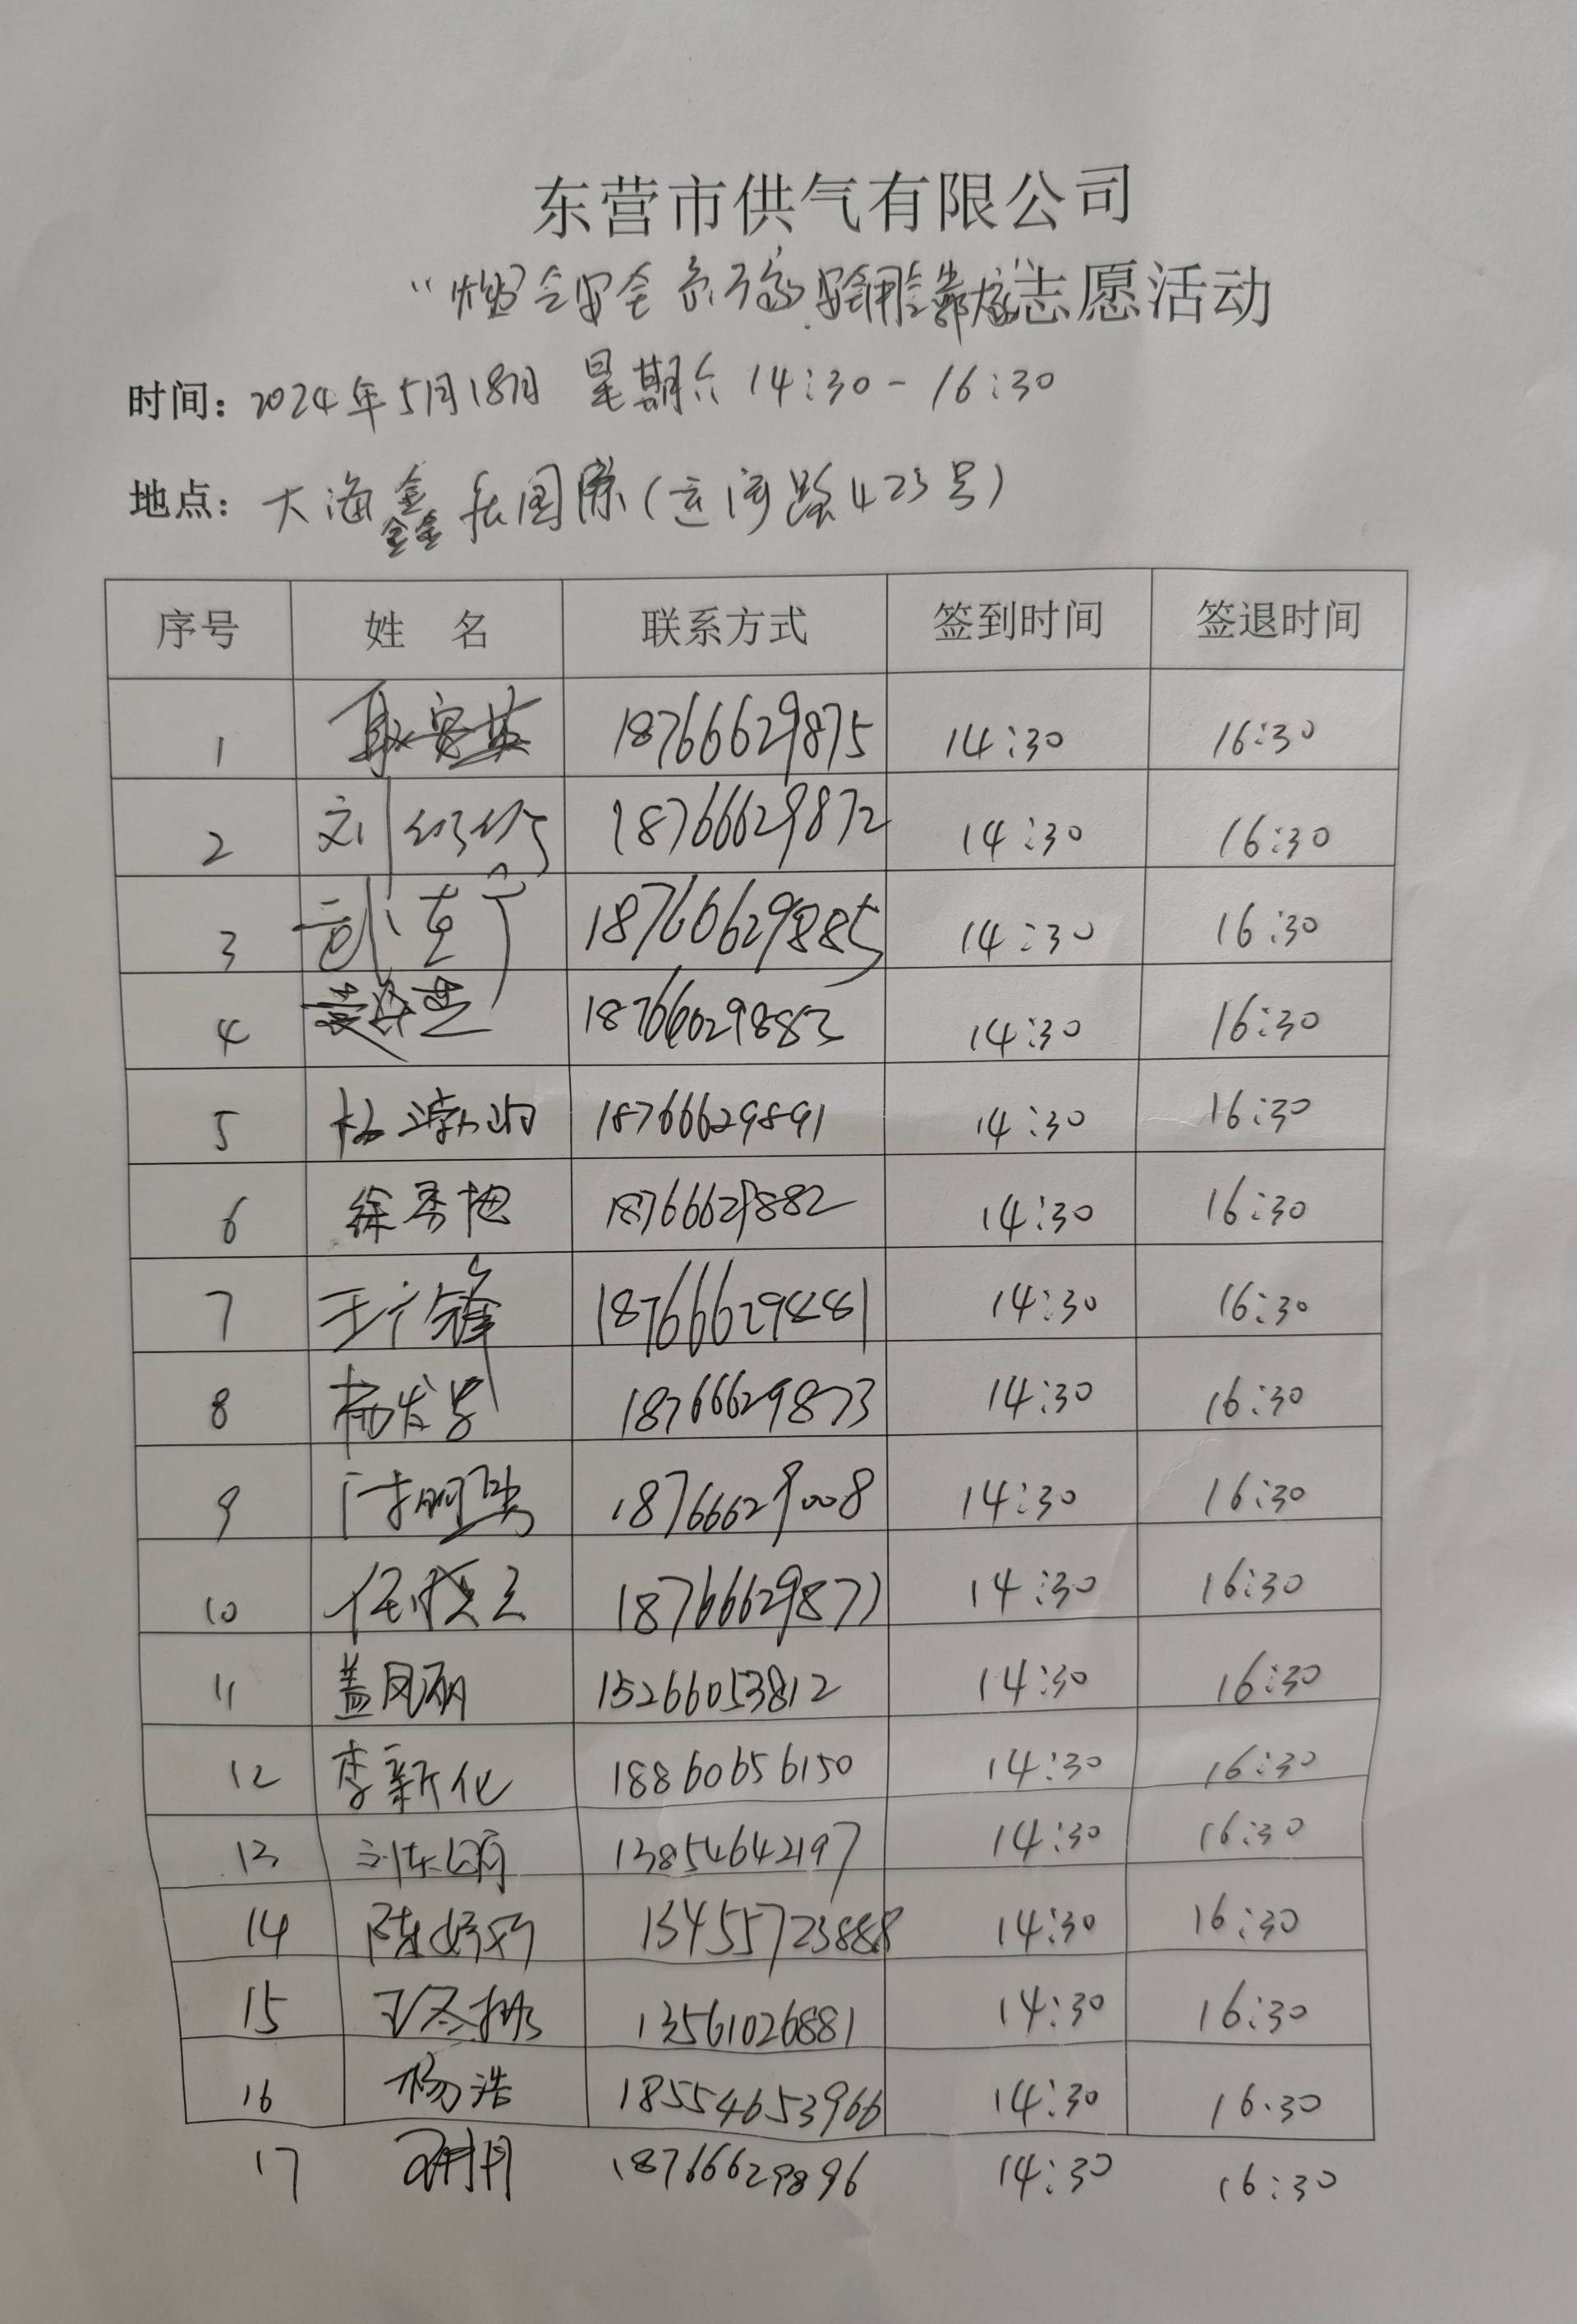 东营市供气有限公司
“燃气安全 志愿活动
时间: 2024年5月18日 星期六 14:30-16:30
地点: 大海鑫 国际(运河路423号)
序号 姓 名 联系方式 签到时间 签退时间
1 18766629875 14:30 16:30
2 刘 18766629872 14:30 16:30
3 18766629885 14:30 16:30
4 14:30 16:30
5 18766629891 14:30 16:30
6 徐秀梅 18766629882 14:30 16:30
7 王广锋 14:30 16:30
8 18766629873 14:30 16:30
9 18766629008 14:30 16:30
10 14:30 16:30
11 盖凤丽 15266053812 14:30 16:30
12 李新化 18860656150 14:30 16:30
13 13854642197 14:30 16:30
14 陈好好 13455723888 14:30 16:30
15 13561026881 14:30 16:30
16 杨浩 18554653966 14:30 16:30
17 18766629896 14:30 16:30